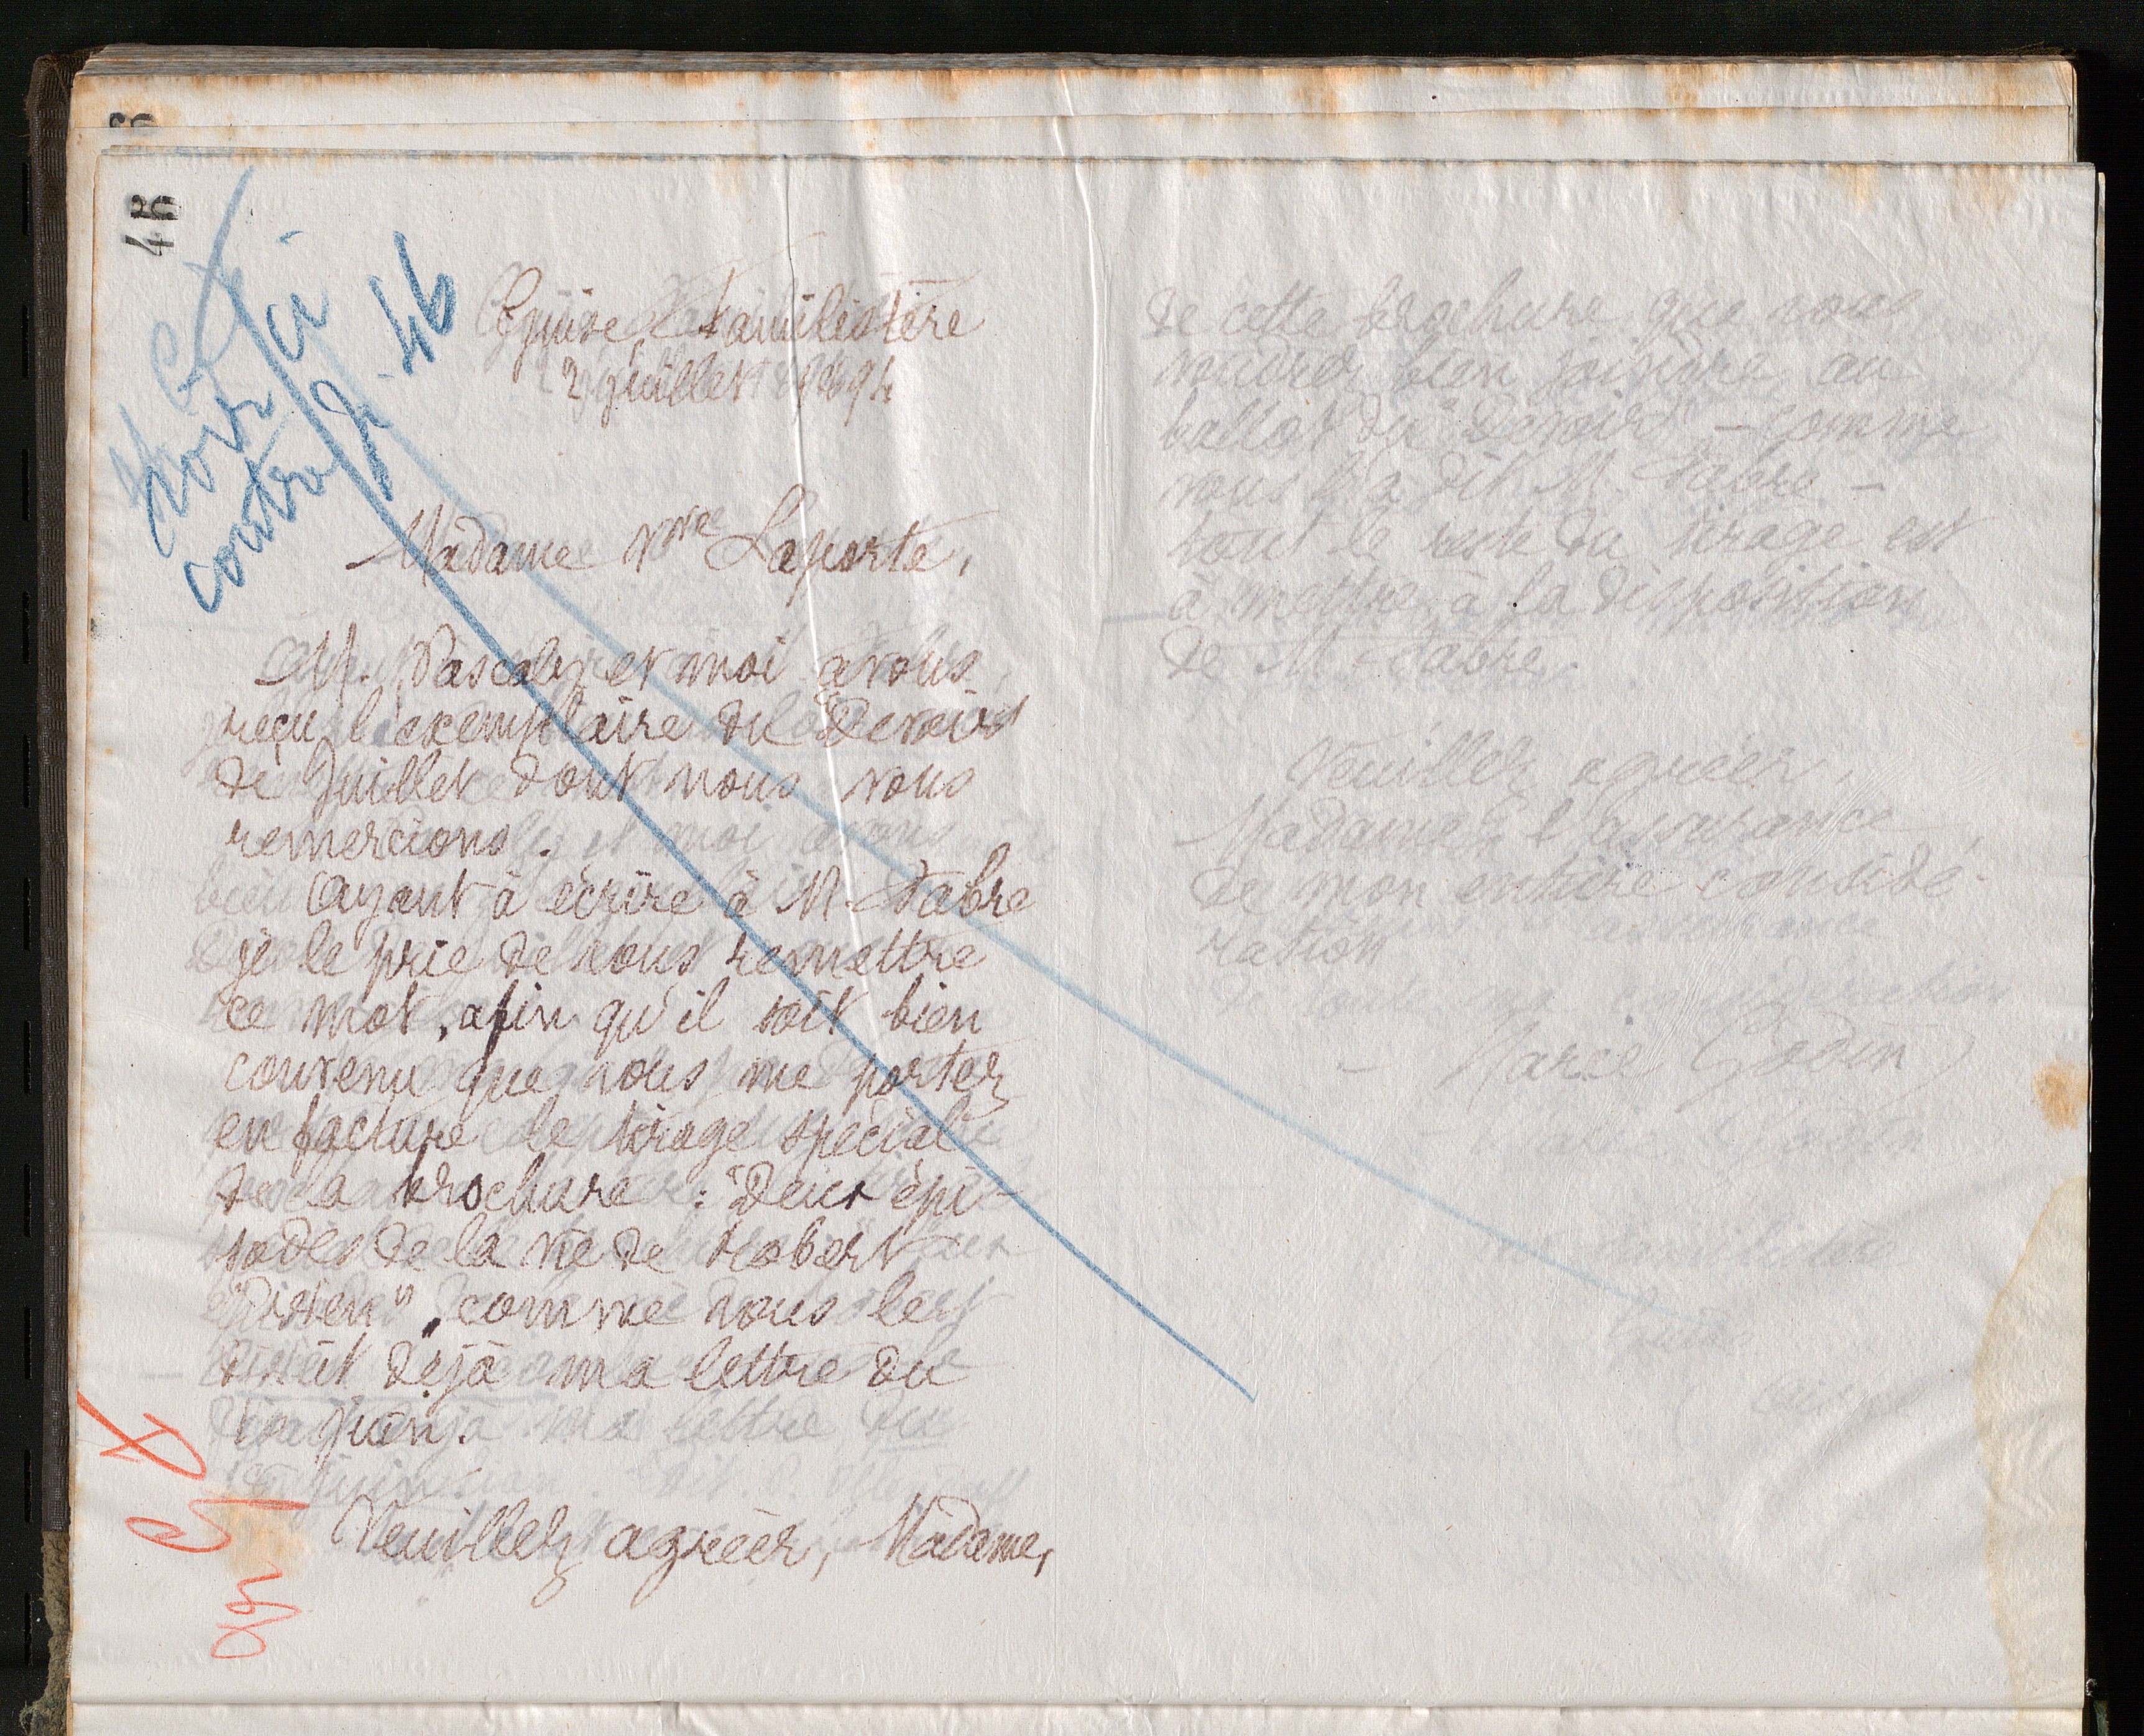 48
Voir ci
contre p. 46
Guise Familistère
2 juillet 1894
Madame Vve Laporte,
M. Pascaly et moi avons
reçu l'exemplaire du "Devoir"
de Juillet dont nous vous
remercions.
Ayant à écrire à M. Fabre
je le prie de vous remettre
ce mot, afin qu'il soit bien
convenu que vous me portez
en facture le tirage spécial
de la brochure : "Deux épi-
sodes de la vie de Robert
Owen", comme vous le
disait déjà ma lettre du
juin.
Veuillez agréer, Madame,
de cette brochure que vous
voudrez bien joindre au
ballot du "Devoir" - comme
vous l'a dit M. Fabre -
tout le reste du tirage est
à mettre à la disposition
de M. Fabre.
Veuillez agréer,
Madame, l'assurance
de mon entière considé-
ration
Marie Godin
Familistère
Guise